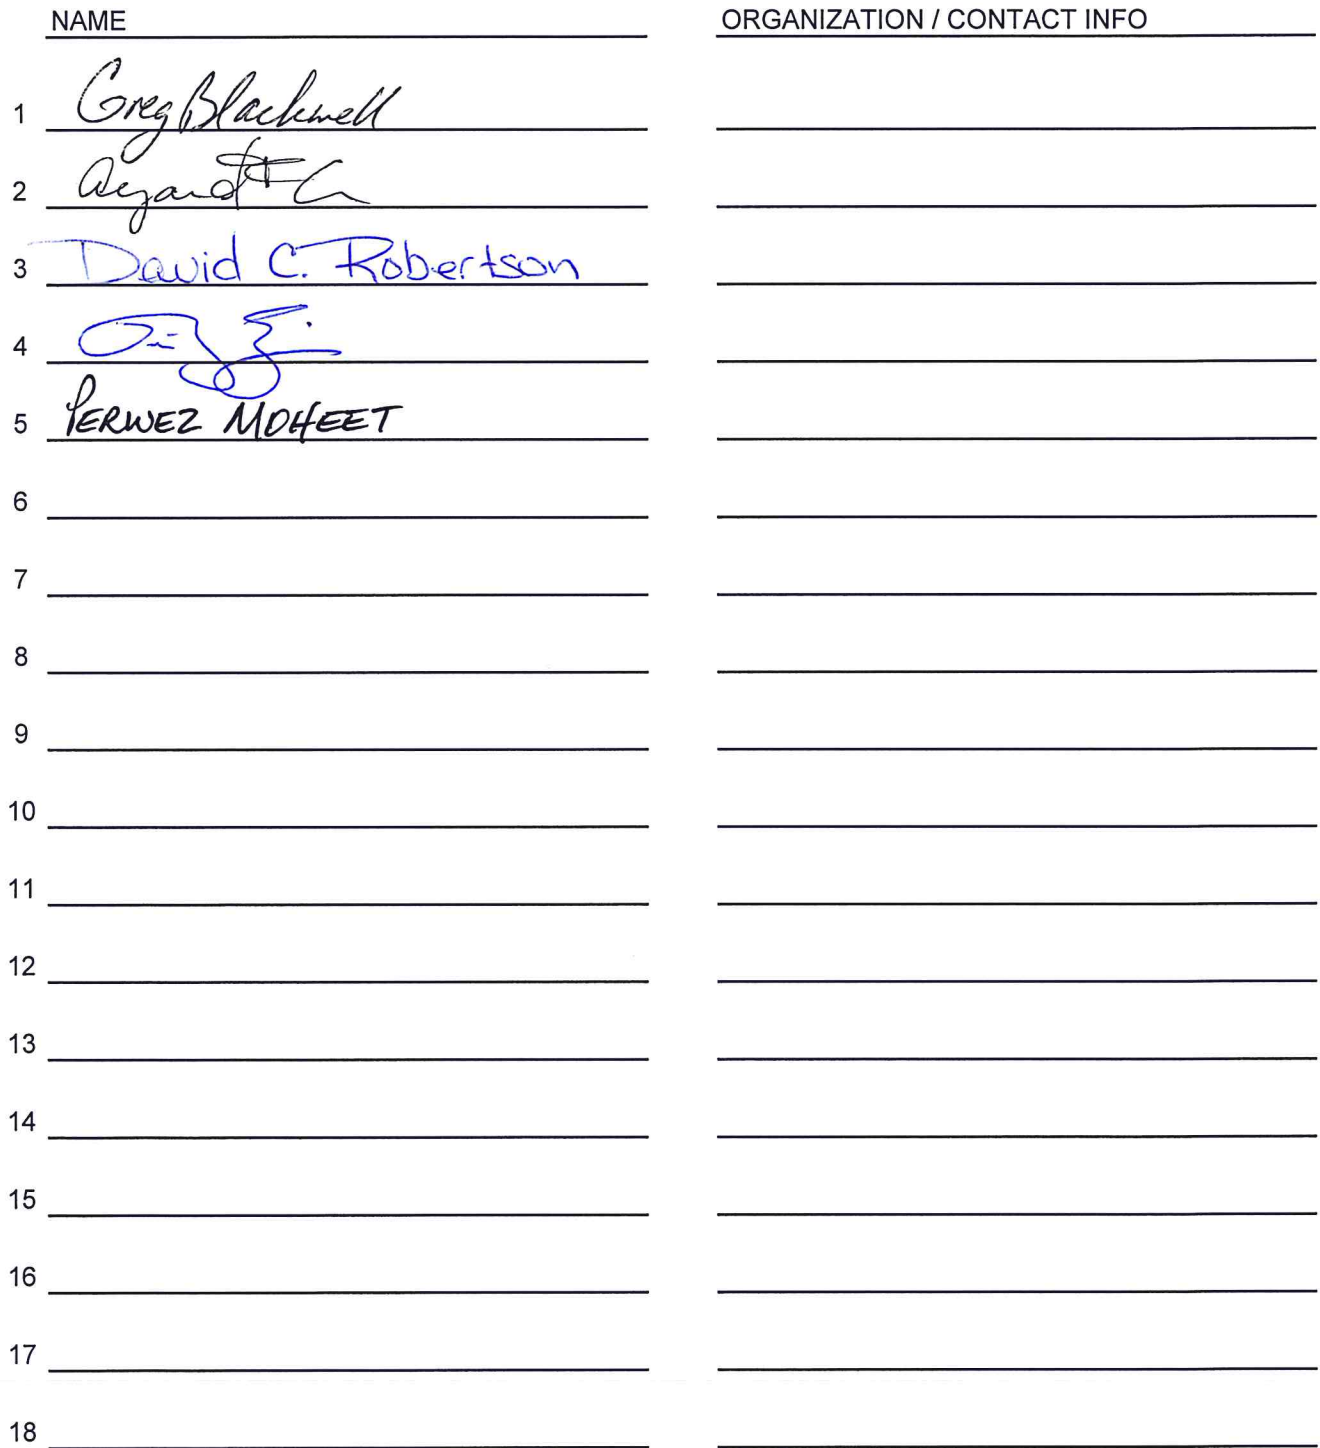 NAME ORGANIZATION / CONTACT INFO
1 Greg Blackwell
2
3 David C. Robertson
4
5 PERWEZ MOHEET
6
7
8
9
10
11
12
13
14
15
16
17
18